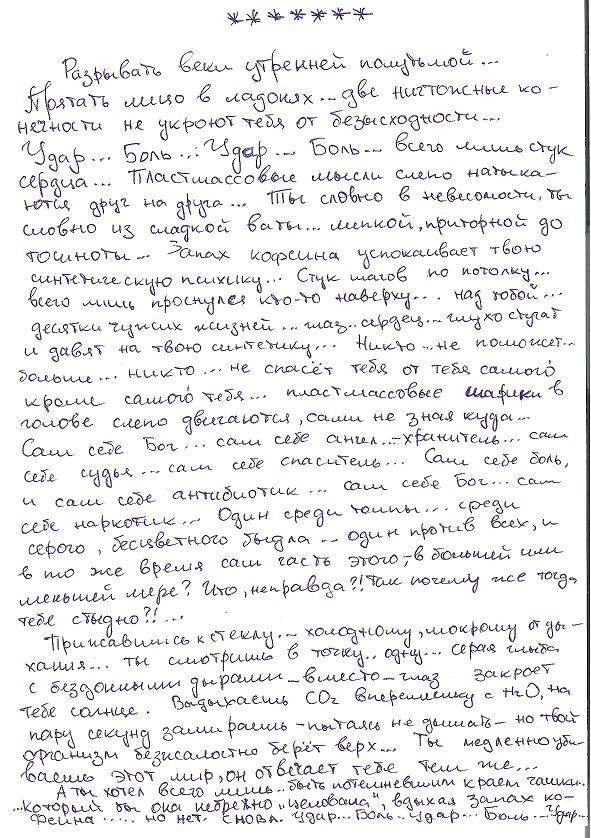 *******
Разрывать веки утренней полутьмой...
Прятать лицо в ладонях... две ничтожные ко-
нечности не укроют тебя от безысходности...
Удар... Боль... Удар... Боль... всего лишь стук
сердца... Пластмассовые мысли слепо натыка-
ются друг на друга... Ты словно в невесомости, ты
словно из сладкой ваты... липкой, приторной до
тошноты... Запах кофеина успокаивает твою
синтетическую психику... Стук шагов по потолку...
всего лишь проснулся кто-то наверху... над тобой...
десятки чужих жизней... глаз.. сердец... глухо стучат
и давят на твою синтетику... Никто... не поможет...
больше... никто... не спасёт тебя от тебя самого
кроме самого тебя... пластмассовые шарики в
голове слепо двигаются, сами не зная куда...
Сам себе Бог... сам себе ангел...-хранитель... сам
себе судья... сам себе спаситель... Сам себе боль,
и сам себе антибиотик... сам себе Бог... сам
себе наркотик... Один среди толпы... среди
серого, бесцветного быдла... один против всех, и
в то же время сам часть этого,-в большей или
меньшей мере? Что, неправда?! Так почему же тогда
тебе стыдно?!...
Прижавшись к стеклу... холодному, мокрому от ды-
хания... ты смотришь в точку.. одну... серая глыба
с бездонными дырами_вместо_глаз закроет
тебе солнце. Вдыхаешь CO₂ вперемешку с H₂O, на
пару секунд замираешь-пытаясь не дышать-но твой
организм безжалостно берёт верх... Ты медленно уби-
ваешь этот мир, он отвечает тебе тем же...
А ты хотел всего лишь.. быть потемневшим краем чашки..
...который бы она небрежно „целовала", вдыхая запах ко-
феина..... но нет. Снова. Удар... Боль.. Удар... Боль... Удар...